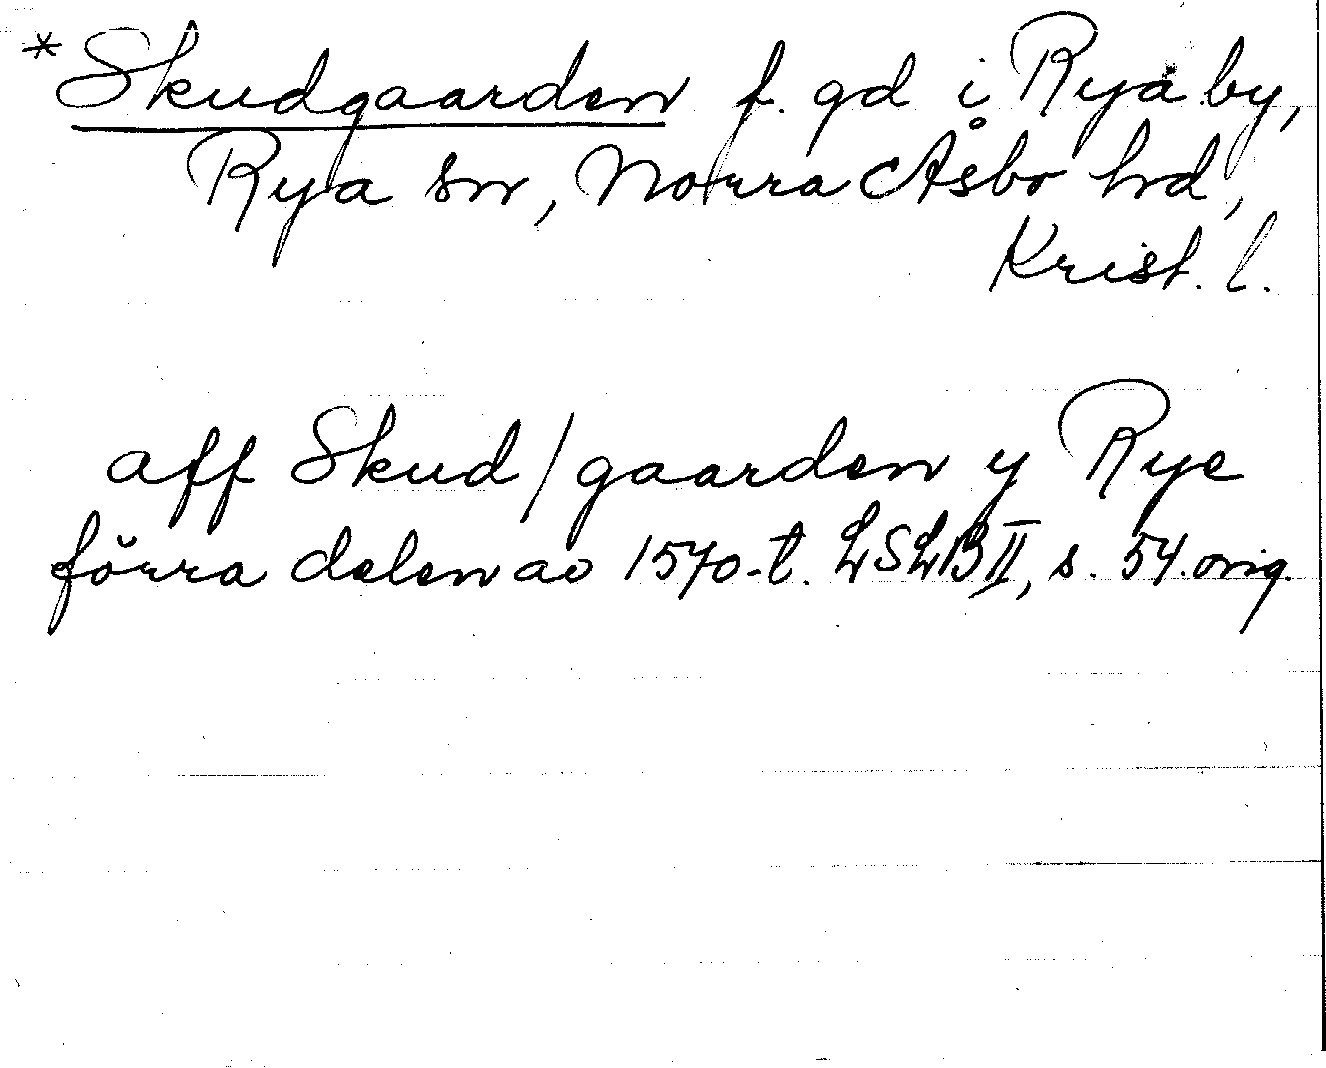 *Skudgaarden f. gd i Rya by,
Rya sn, Norra Åsbo hrd,
Krist. l.
aff Skud/gaarden y Rye
förra delen av 1570-t. LSLB II, s. 54. orig.